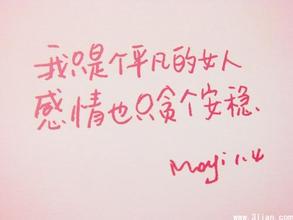 我只是个平凡的女人
感情也只贪个安稳、
Moyi 1.4
www.3lian.com